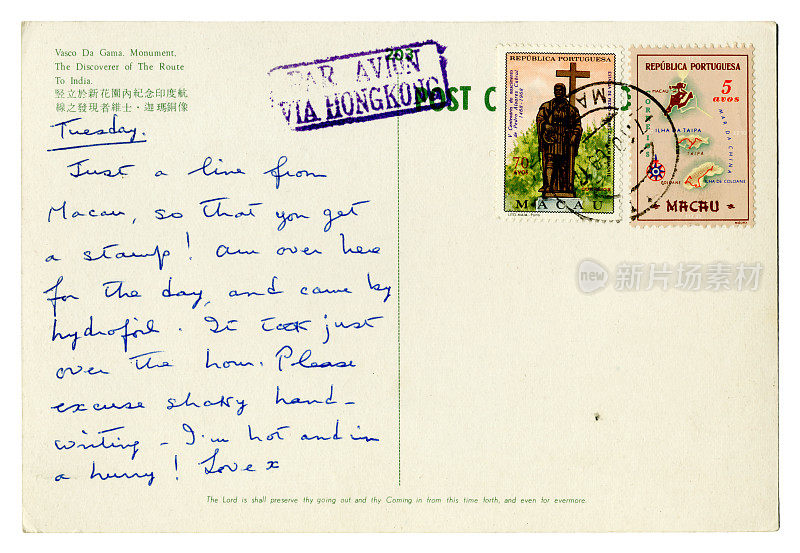 Vasco Da Gama. Monument,
The Discoverer of The Route
To India.
竪立於新花園內紀念印度航
線之發現者維士・迦瑪銅像
PAR AVION
VIA HONGKONG
203
POST C
REPÚBLICA PORTUGUESA
V Centenário
de Pedro Álvares Cabral
1468-1968
70
AVOS
MACAU
REPÚBLICA PORTUGUESA
5
avos
MACAU
ILHA DA TAIPA
TAIPA
MAR DA CHINA
COLOANE
ILHA DE COLOANE
MACAU
Tuesday.
Just a line from
Macau, so that you get
a stamp! Am over here
for the day, and came by
hydrofoil. It took just
over the hour. Please
excuse shaky hand-
writing - I'm hot and in
a hurry! Love x
The Lord is shall preserve thy going out and thy Coming in from this time forth, and even for evermore.
new
iStock